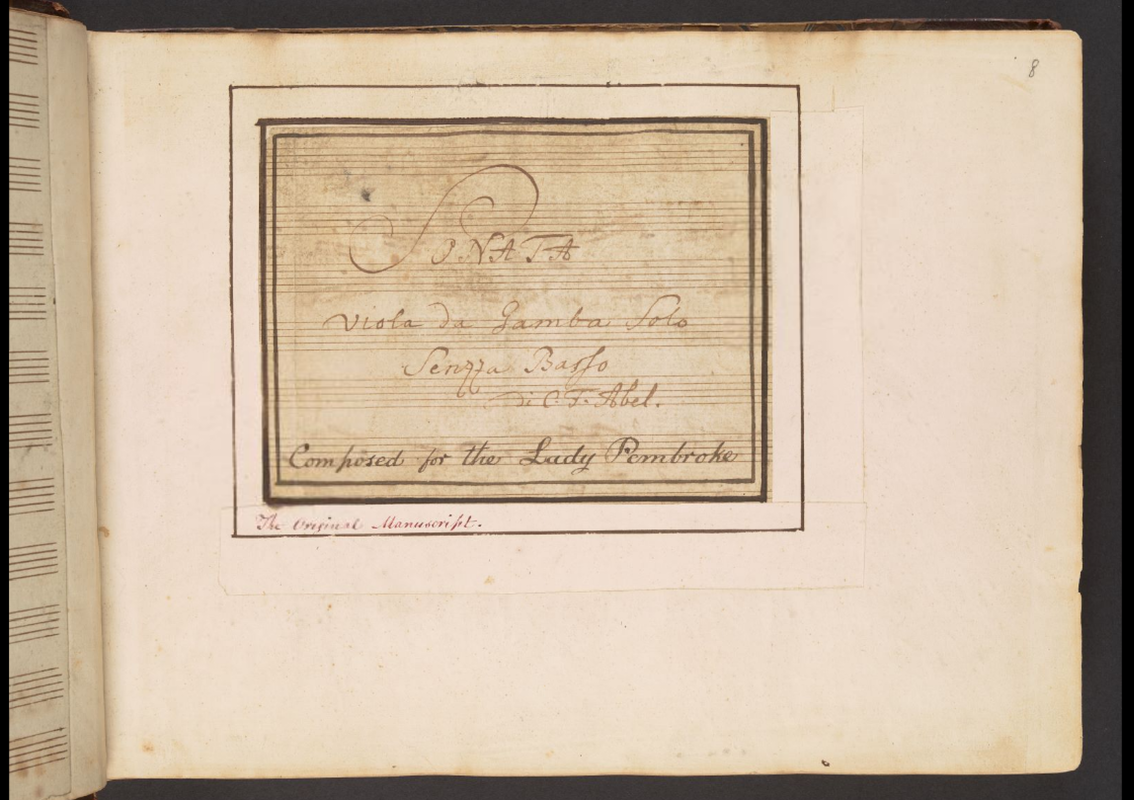 8
SONATA
Viola da Gamba Solo
Senzza Basso
di C. F. Abel.
Composed for the Lady Pembroke
The Original Manuscript.